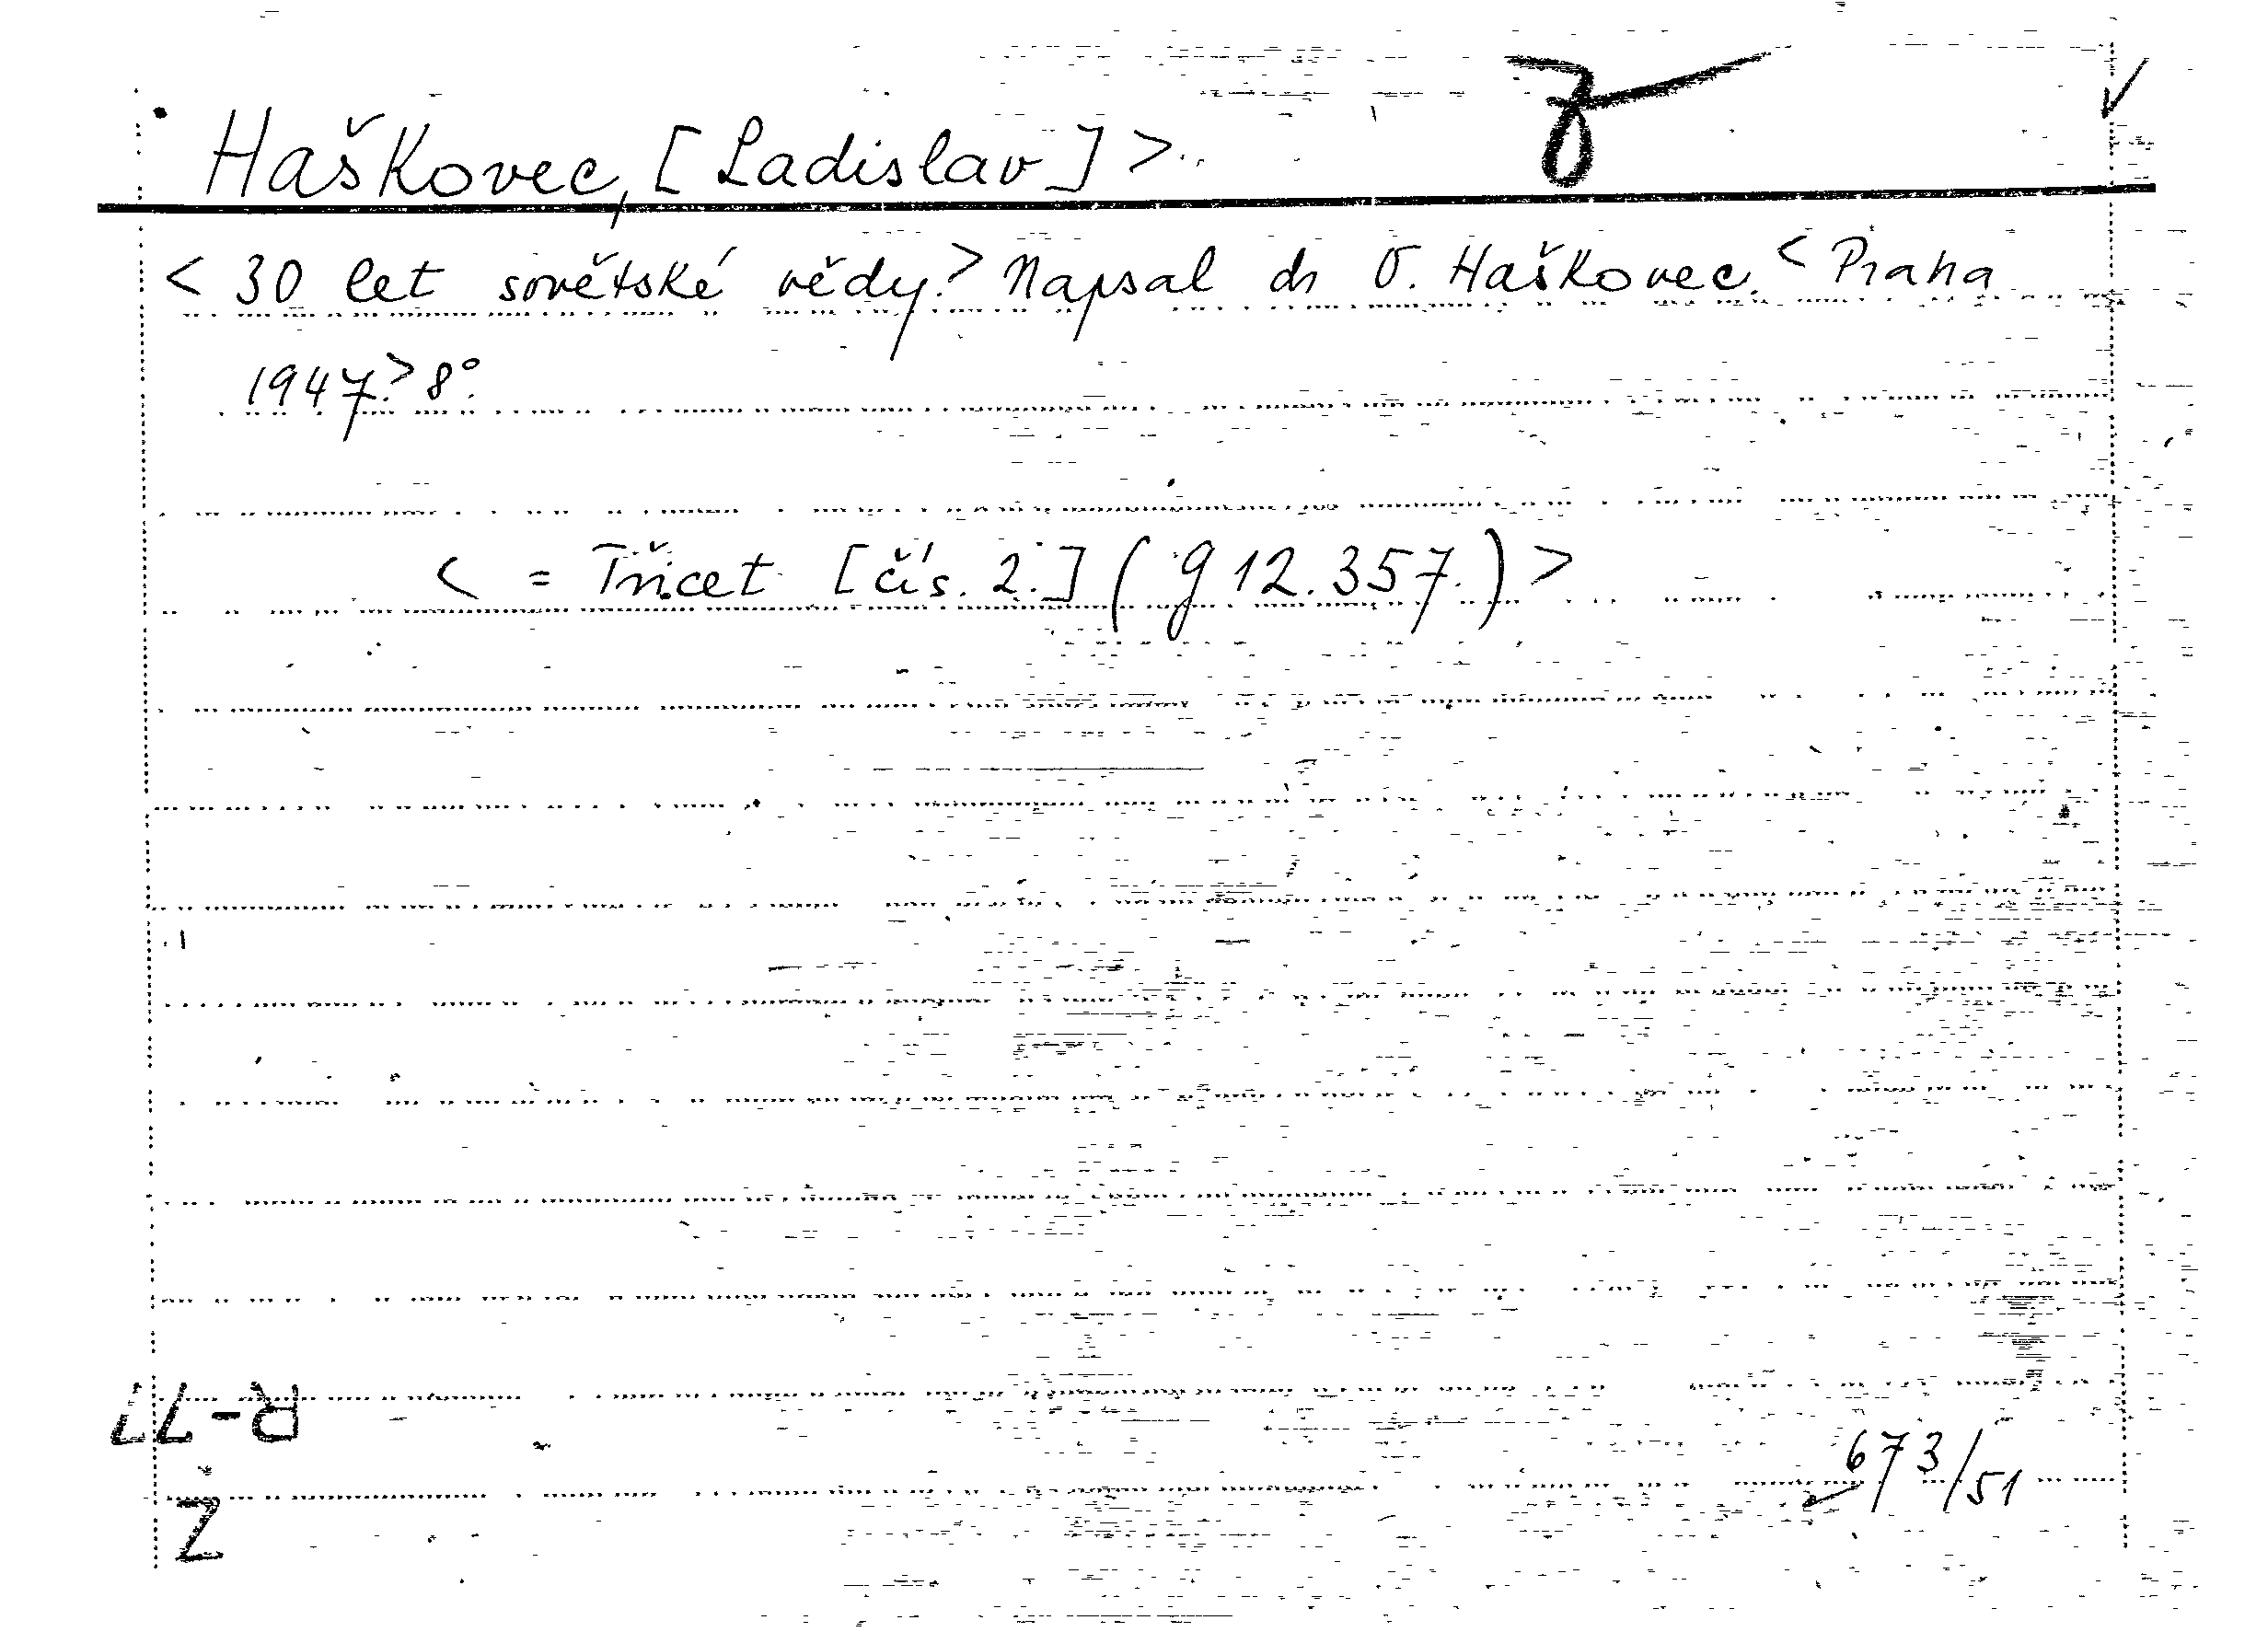 Haškovec, [Ladislav] >
< 30 let sovětské vědy.> Napsal dr O. Haškovec. < Praha
1947.> 8°.
< = Třicet [čís. 2.] (g 12.357.) >
R-77
Ž
673/51